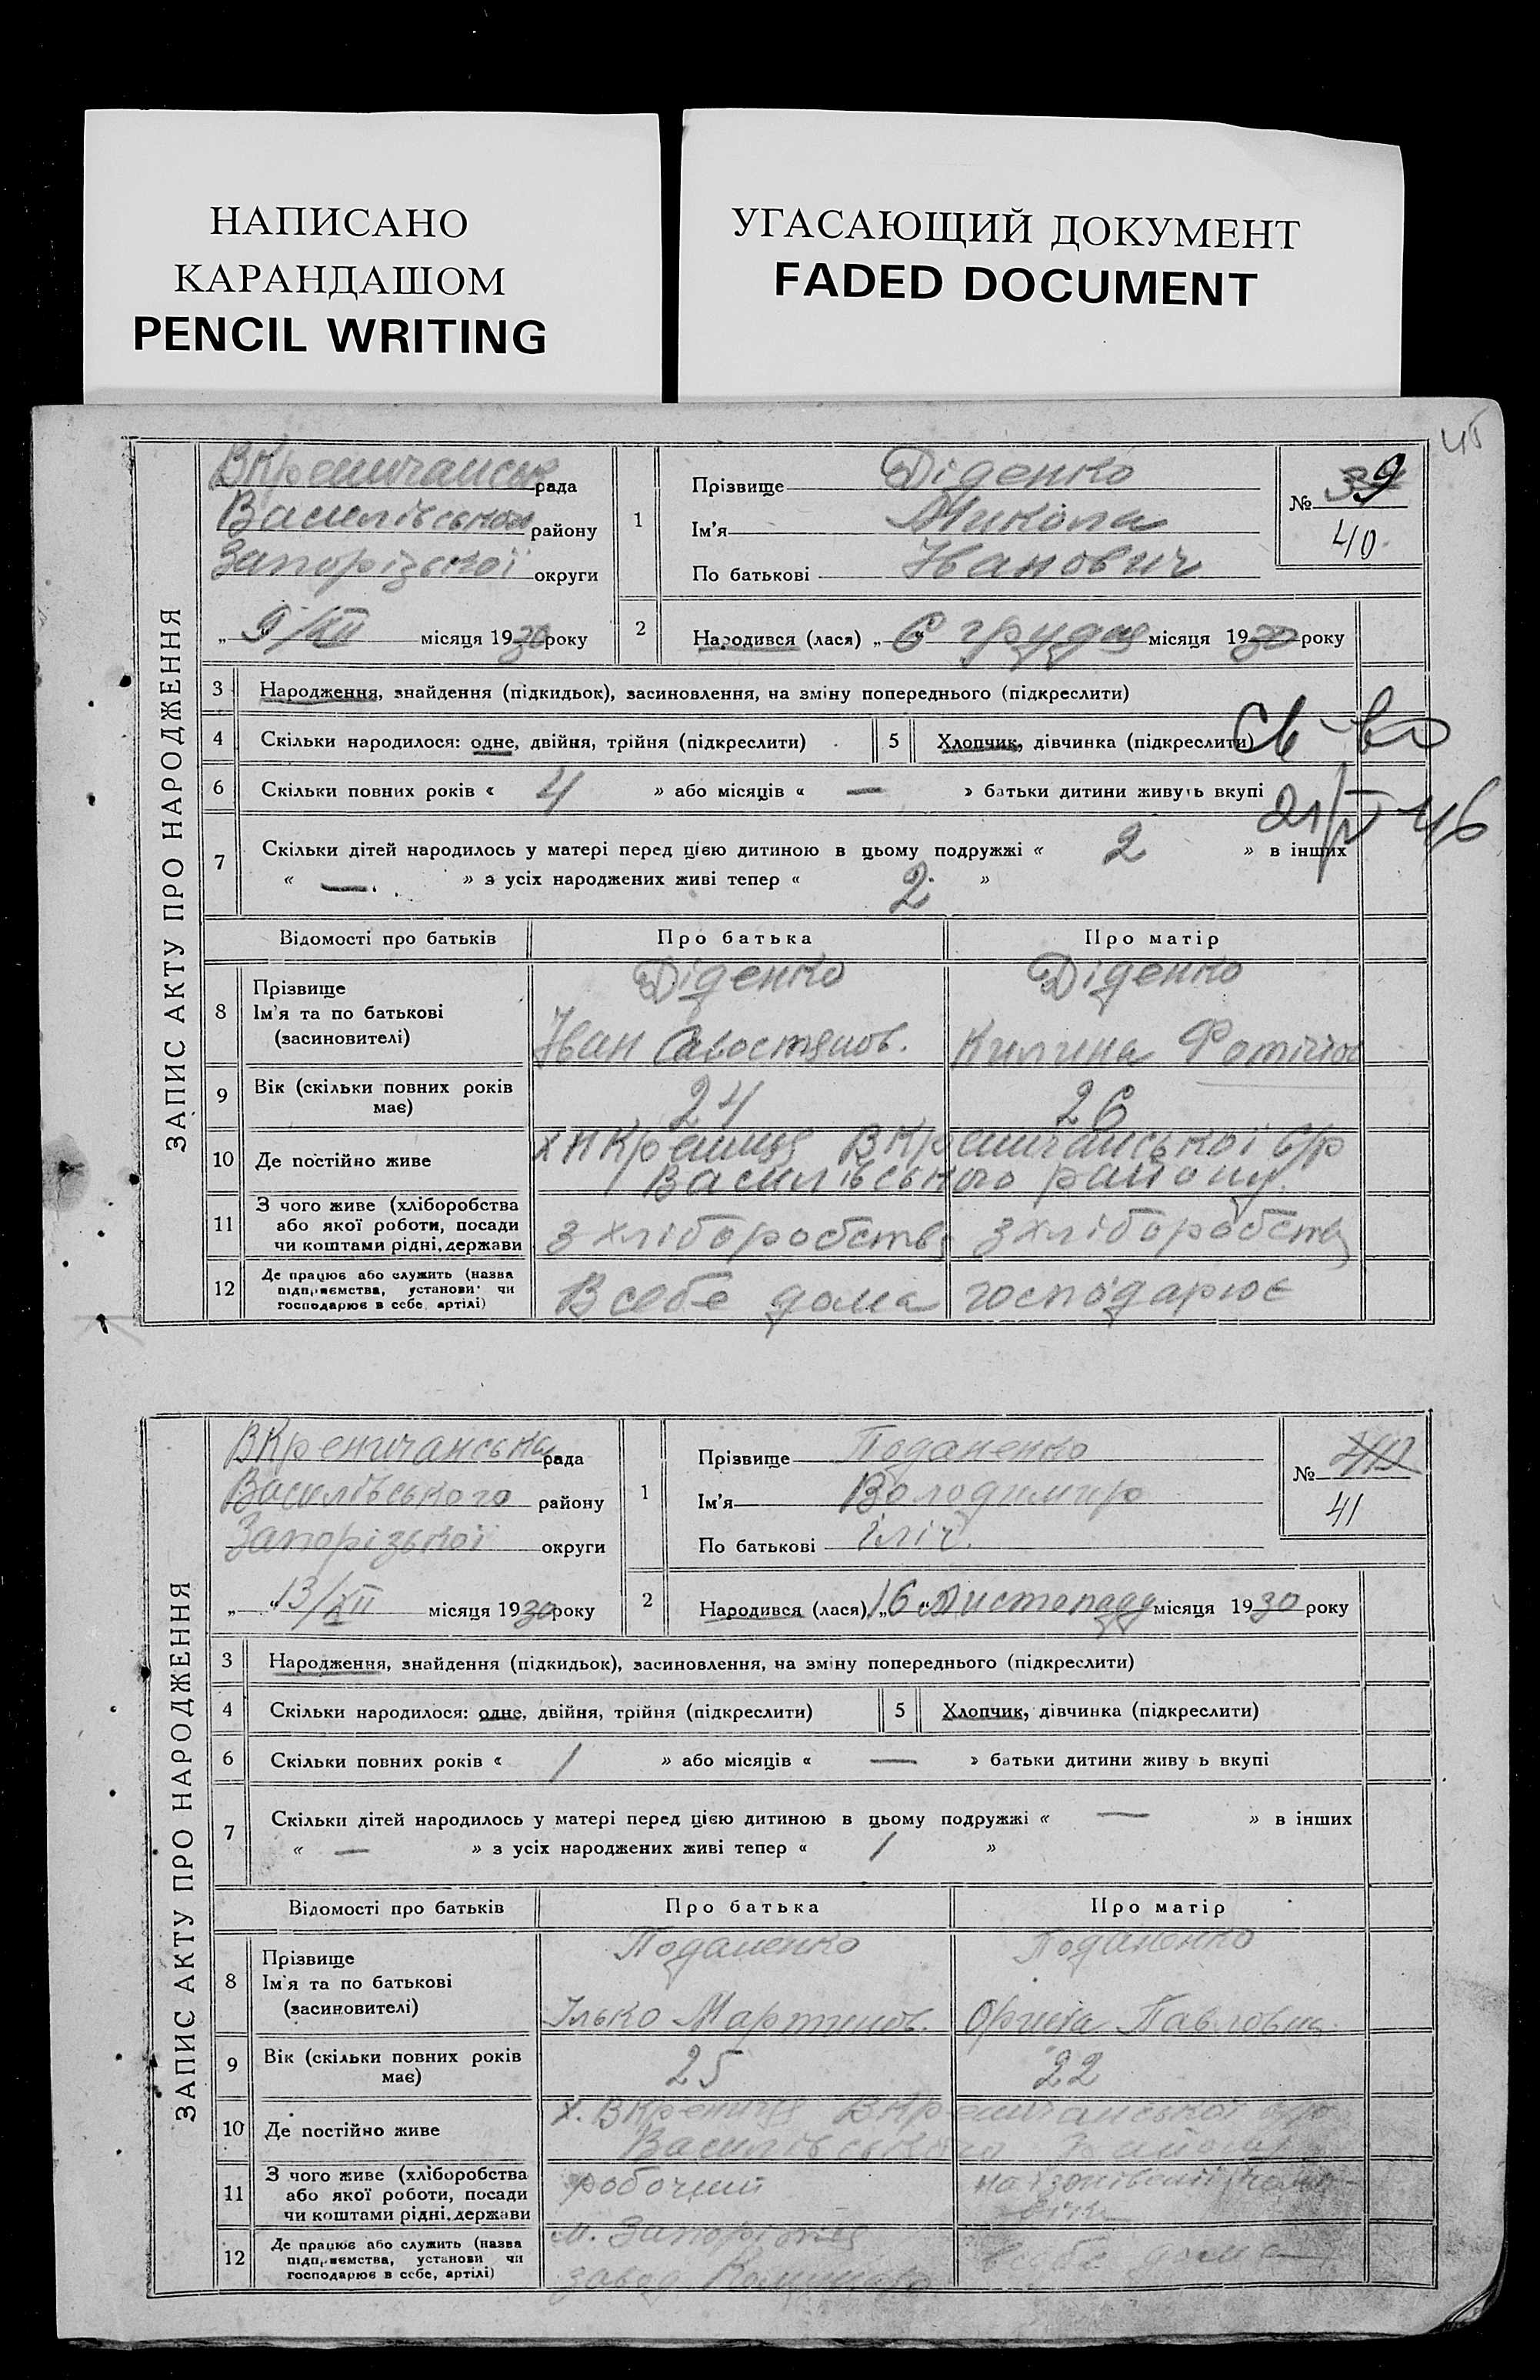 НАПИСАНО
КАРАНДАШОМ
PENCIL WRITING
УГАСАЮЩИЙ ДОКУМЕНТ
FADED DOCUMENT
45
ЗАПИС АКТУ ПРО НАРОДЖЕННЯ
ВКреничанськ рада
Василівського району
Запорізької округи
„ 9/XII місяця 1930 року
1
Прізвище Діденко
Ім'я Микола
По батькові Іванович
№ 39
40
2 Народився (лася) „ 6 " грудня місяця 1930 року
3 Народження, знайдення (підкидьок), засиновлення, на зміну попереднього (підкреслити)
4 Скільки народилося: одне, двійня, трійня (підкреслити)
5 Хлопчик, дівчинка (підкреслити)
Св-во
21/V-46
6 Скільки повних років « 4 » або місяців « — » батьки дитини живуть вкупі
7 Скільки дітей народилось у матері перед цією дитиною в цьому подружжі « 2 » в інших
« — » з усіх народжених живі тепер « 2 »
Відомості про батьків Про батька Про матір
8 Прізвище
Ім'я та по батькові
(засиновителі)
Діденко
Іван Савостянов.
Діденко
Килина
9 Вік (скільки повних років має)
24 26
10 Де постійно живе
ВКреничанської с/р
Василівського району
11 З чого живе (хліборобства
або якої роботи, посади
чи коштами рідні, держави
з хліборобства з хліборобства
12 Де працює або служить (назва
підприємства, установи чи
господарює в себе, артілі)
В себе дома господарює
ЗАПИС АКТУ ПРО НАРОДЖЕННЯ
ВКреничанська рада
Василівського району
Запорізької округи
„ 13/XII місяця 1930 року
1
Прізвище Поданенко
Ім'я Володимир
По батькові Ілліч.
№
41
2 Народився (лася) „ 16 " Листопаду місяця 1930 року
3 Народження, знайдення (підкидьок), засиновлення, на зміну попереднього (підкреслити)
4 Скільки народилося: одне, двійня, трійня (підкреслити)
5 Хлопчик, дівчинка (підкреслити)
6 Скільки повних років « 1 » або місяців « — » батьки дитини живу ь вкупі
7 Скільки дітей народилось у матері перед цією дитиною в цьому подружжі « — » в інших
« — » з усіх народжених живі тепер « 1 »
Відомості про батьків Про батька Про матір
8 Прізвище
Ім'я та по батькові
(засиновителі)
Поданенко
Ілько Мартинов.
Поданенко
Орина Павловна
9 Вік (скільки повних років має)
25 22
10 Де постійно живе
х. ВКрениця ВКреничанської с/р
Василівського району
11 З чого живе (хліборобства
або якої роботи, посади
чи коштами рідні, держави
робочий
12 Де працює або служить (назва
підприємства, установи чи
господарює в себе, артілі)
м. Запоріжжя
завод